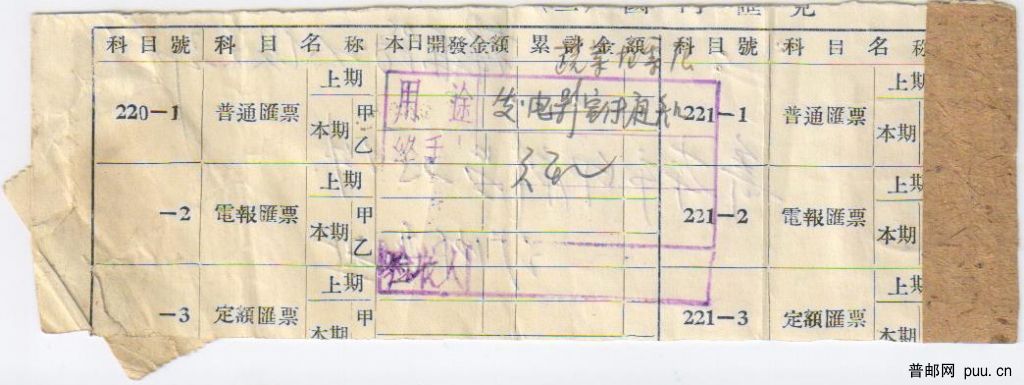 國內匯兌
科目號 科目名称 本日開發金額 累計金額 科目號 科目名称
上期 上期
220-1 普通匯票 本期 甲 乙 221-1 普通匯票 本期
用途
经手
上期 上期
-2 電報匯票 本期 甲 乙 221-2 電報匯票 本期
验收人
上期 上期
-3 定額匯票 本期 甲 221-3 定額匯票 本期
普邮网 puu.cn